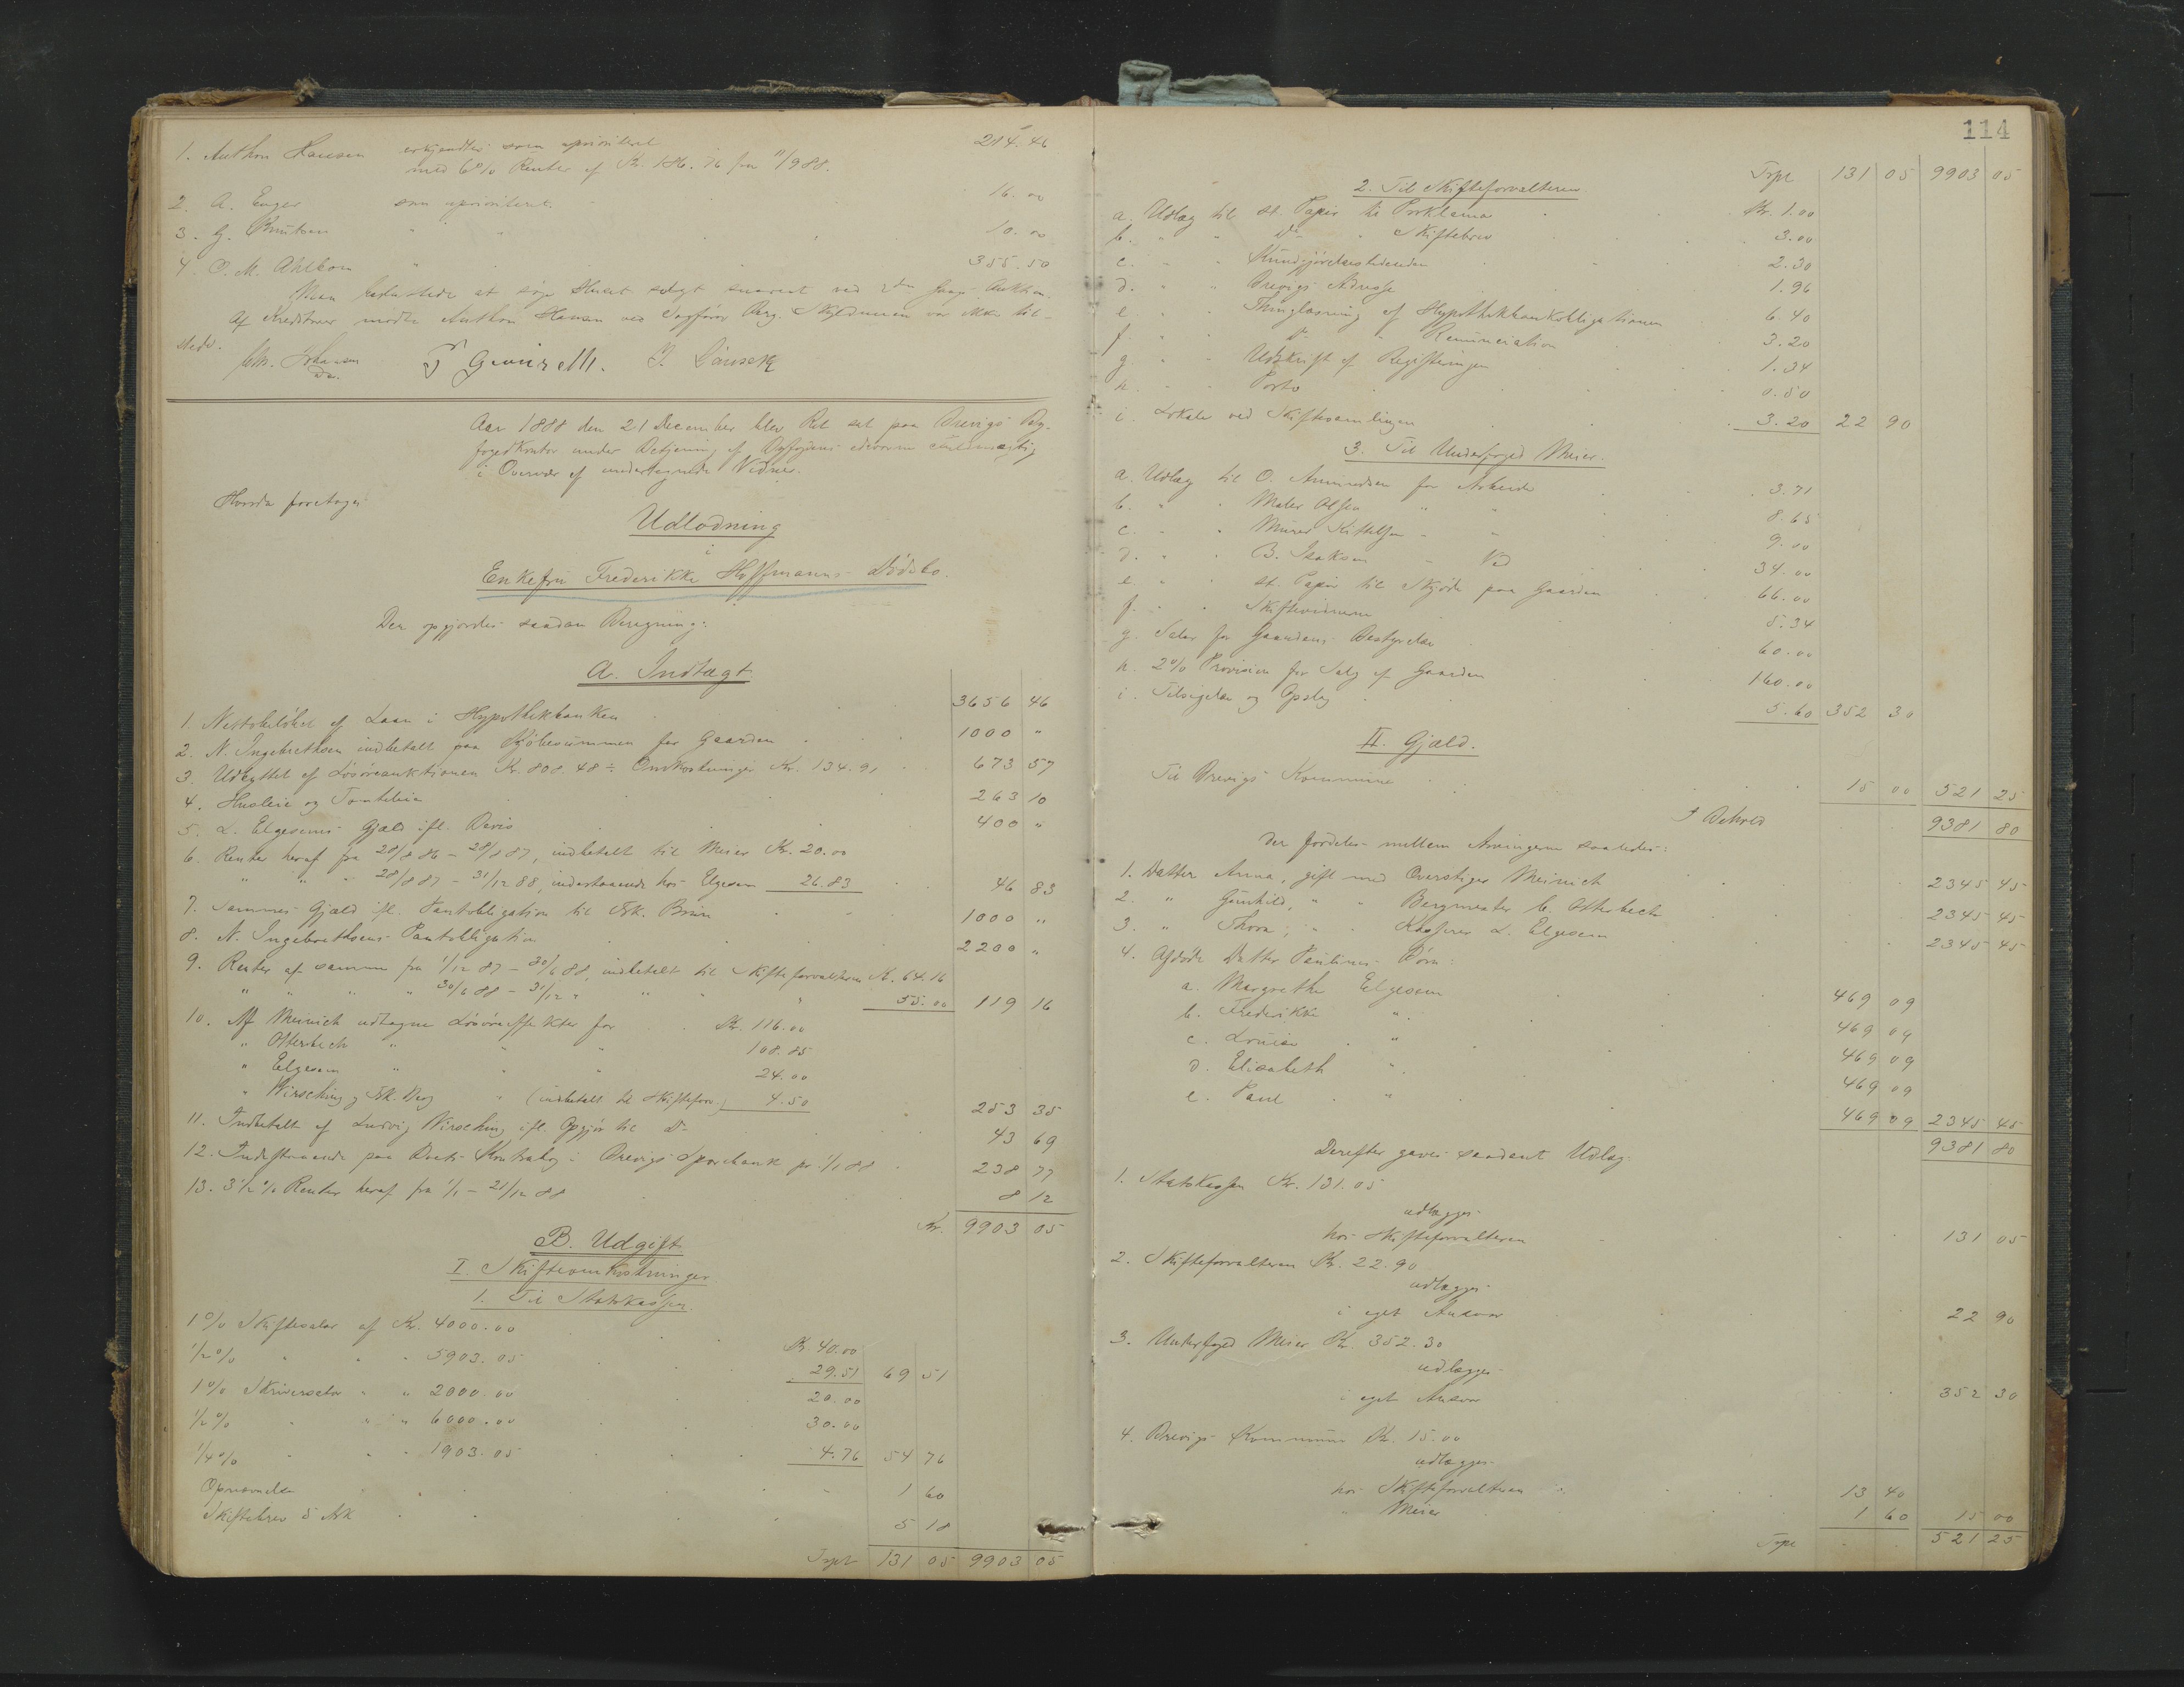 1. Anthon Hansen erkjendtes som uprioriteret 214.46
med 6 % Renter af Kr. 186.76 fra 11/9 88.
2. A. Enger som uprioriteret. 16.00
3. G. Knutsen " " 10.00
4. O. M. Ahlbom " 355.50
Man besluttede at søge Huset solgt snarest ved 2den Gangs Auktion.
Af Kreditorer mødte Anthon Hansen ved Sagfører Berg. Skyldneren var ikke til-
stede.
Chr. Johansen
Aar 1888 den 21 December blev Ret sat paa Brevigs By-
fogedkontor under Betjening af Byfogdens edsvorne Fuldmægtig
i Overvær af undertegnede Vidner.
Hvorda foretoges
Udlodning
i
Enkefru Frederikke Hoffmanns Dødsbo.
Der opgjordes saadan Beregning:
A. Indtægt
1. Nettobeløbet af Laan i Hypothekbanken 3656 46
2. N. Ingebrethsen indbetalt paa Kjøbesummen for Gaarden 1000 "
3. Udbyttet af Løsøreauktionen Kr. 808.48 ÷ Omkostninger Kr. 134.91 673 57
4. Husleie og Tomteleie 263 10
5. L. Elgesems Gjæld ifl. Bevis 400 "
6. Renter heraf fra 28/8 86 – 28/8 87, indbetalt til Meier Kr. 20.00
" " " 28/8 87 – 31/12 88, indestaaende hos Elgesem 26.83 46 83
7. Sammes Gjæld ifl. Pantobligation til Frk. Bruun 1000 "
8. N. Ingebrethsens Pantobligation 2200 "
9. Renter af samme fra 1/12 87 – 30/6 88, indbetalt til Skifteforvalteren Kr. 64.16
" " " " 30/6 88 – 31/12 " " " " 55.00 119 16
10. Af Meinich udtagne Løsøreeffekter for Kr. 116.00
" Otterbech " " " 108.85
" Elgesem " " " 24.00
" Wirsching " (indbetalt til Skifteforv.) 4.50 253 35
11. Indbetalt af Ludvig Wirsching ifl. Opgjør til Do 43 69
12. Indestaaende paa Boets Kontrabog i Brevigs Sparebank pr. 1/1 88 238 77
13. 3 1/2 % Renter heraf fra 1/1 – 21/12 88 8 12
Kr. 9903 05
B. Udgift
I. Skifteomkostninger.
1. Til Statskassen.
1 % Skiftesalær af Kr. 4000.00 Kr. 40.00
1/2 % " " " 5903.05 29.51 69 51
1 % Skriversalær " " 2000.00 20.00
1/2 % " " " 6000.00 30.00
1/4 % " " " 1903.05 4.76 54 76
Opnævnelse 1 60
Skiftebrev 5 Ark 5 18
Trspt. 131 05 9903 05
114
Trspt 131 05 9903 05
2. Til Skifteforvalteren
a. Udlæg til st. Papir til Proklama Kr. 1.00
b. " " Do " Skiftebrev 3.00
c. " " Kundgjørelsestidenden 2.30
d. " " Brevigs Adresse 1.96
e. " " Thinglæsning af Hypothekbankobligationen 6.40
f. " " Do " Renunciation 3.20
g. " " Udskrift af Registreringen 1.34
h. " " Porto 0.50
i. Lokale ved Skiftesamlingen 3.20 22 90
3. Til Underfoged Meier.
a. Udlæg til O. Amundsen for Arbeide 3.71
b. " " Maler Olsen " " 8.65
c. " " Murer Kittelsen " " 9.00
d. " " B. Isaksen " Ved 34.00
e. " " st. Papir til Skjøde paa Gaarden 66.00
f. " " Skiftevidnerne 5.34
g. Salær for Gaardens Bestyrelse 60.00
h. 2 % Provision for Salg af Gaarden 160.00
i. Tilsigelse og Opslag 5.60 352 30
II. Gjæld.
Til Brevigs Kommune 15 00 521 25
I Behold 9381 80
der fordeles mellem Arvingerne saaledes:
1. Datter Anna, gift med Overstiger Meinich 2345 45
2. " Gunhild, " " Bergmester C. Otterbech 2345 45
3. " Thora, " " Kasserer L. Elgesem 2345 45
4. Afdøde Datter Paulines Børn:
a. Margrethe Elgesem 469 09
b. Frederikke " 469 09
c. Louise " 469 09
d. Elisabeth " 469 09
e. Paul " 469 09 2345 45
9381 80
Derefter gaves saadant Udlæg:
1. Statskassen Kr. 131.05
udlægges
hos Skifteforvalteren 131 05
2. Skifteforvalteren Kr. 22.90
udlægges
i eget Ansvar 22 90
3. Underfoged Meier Kr. 352.30
udlægges
i eget Ansvar 352 30
4. Brevigs Kommune Kr. 15.00
udlægges
hos Skifteforvalteren 13 40
" Meier 1 60 15 00
Trspt 521 25